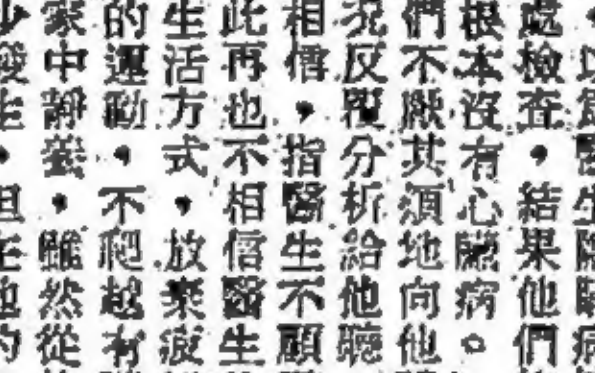 處檢查，結果他們
根本沒有心臟病。
們不厭其煩地向他
況反覆分析給他聽
相信，指醫生不顧
此再也不相信醫生
生活方式，放棄疲
的運動，不爬越有
家中靜養，雖然從